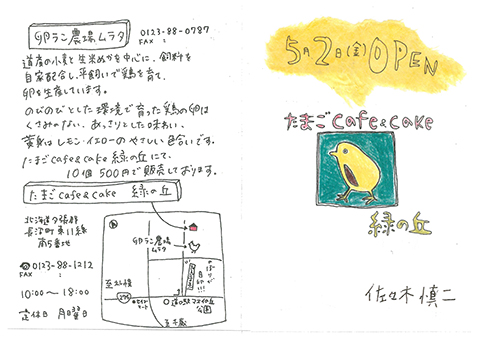 卵ラン農場ムラタ
0123-88-0787
FAX :
道産の小麦と生米ぬかを中心に、飼料を
自家配合し、平飼いで鶏を育て、
卵を生産しています。
のびのびとした環境で育った鶏の卵は
くさみのない、あっさりとした味わい、
黄身はレモンイエローのやさしい色合いです。
たまごcafe&cake 緑の丘にて、
10個 500円で販売しております。
たまごcafe&cake 緑の丘
北海道夕張郡
長沼町東11線
南5番地
☎0123-88-1212
FAX :
10:00〜18:00
定休日 月曜日
卵ラン農場
ムラタ
至札幌
274
至千歳
公園
5月2日(金)OPEN
たまごcafe&cake
緑の丘
佐々木慎二